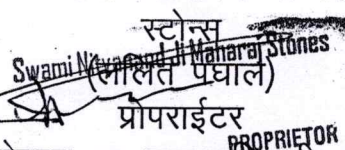 स्टोन्स
Swami Nityanand Ji Maharaj Stones
(ललित पंघाल)
प्रोपराईटर
PROPRIETOR